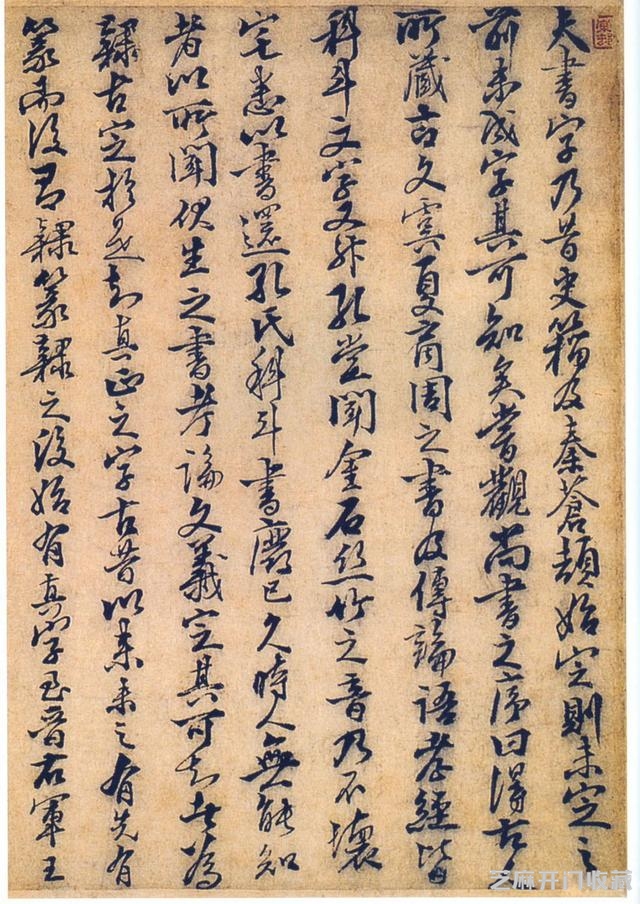 夫書字乃昔史籀及秦蒼頡始定則未定之
前未成字其可知矣嘗觀尚書之序曰得古人
所藏古文虞夏商周之書及傳論語孝經皆
科斗文字又升孔堂聞金石絲竹之音乃不壞
宅悉以書還孔氏科斗書廢已久時人無能知
者以所聞伏生之書考論文義定其可知者為
隸古定於是知真正之字古昔以來未之有先有
篆而後有隸篆隸之後始有真字至晉右軍王
芝麻开门收藏